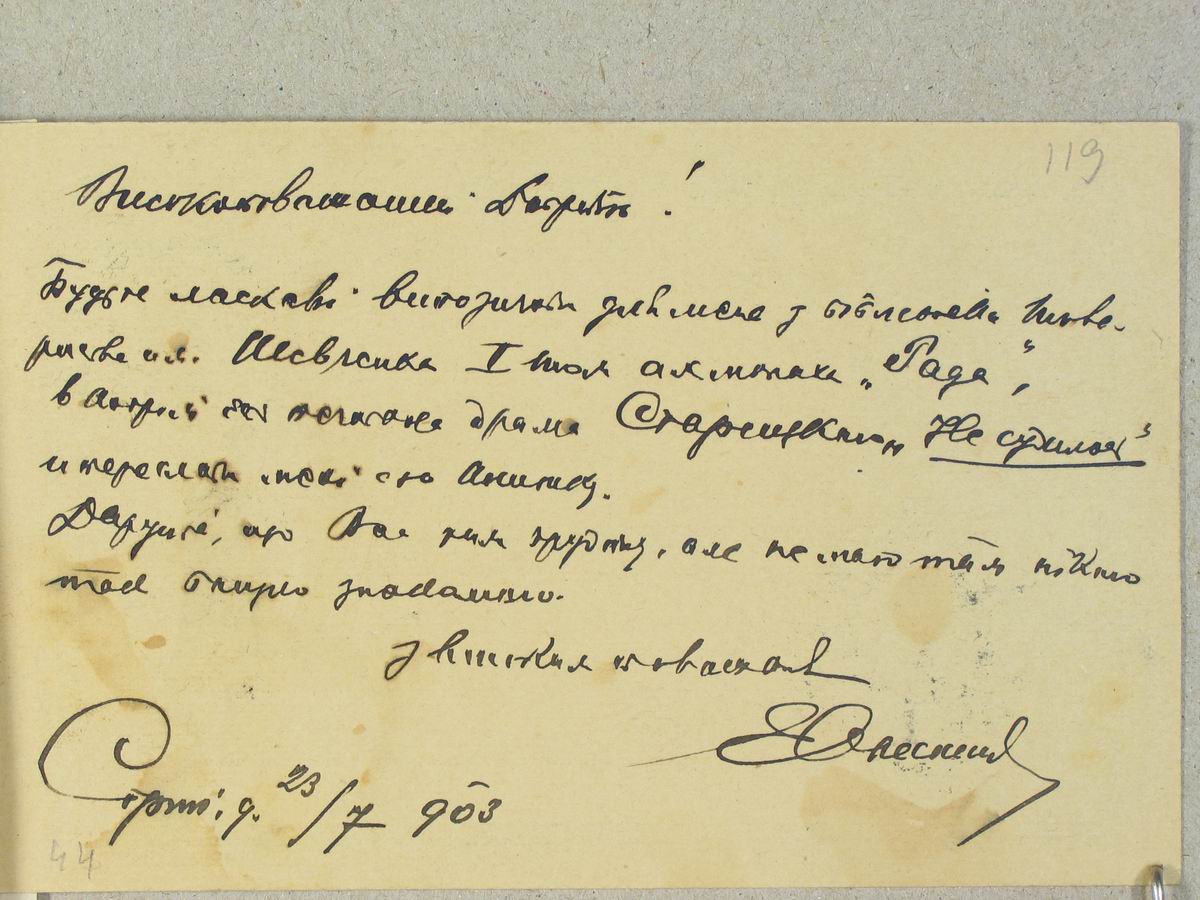 119
Високоповажаний Добродію!
Будьте ласкаві випозичити для мене з бібліотеки Това-
риства им. Шевченка I том альманаха „Рада”,
в котрій єсть печатана драма Старицкого „Не судилось”
и переслати мені сю книжку.
Даруйте, що Вас тим труджу, але не маю там нікого
так близко знакомого.
З високим поважанєм
ЕОлесницкий
Стрий, д. 23/7 903
44